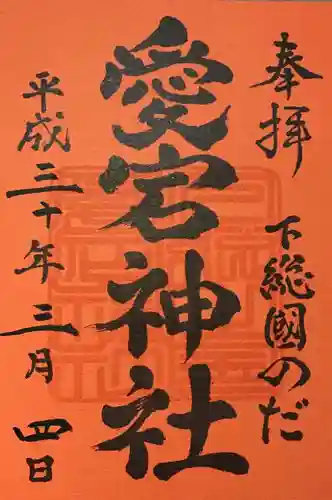 奉拝
下総國のだ
愛宕神社
平成三十年三月四日